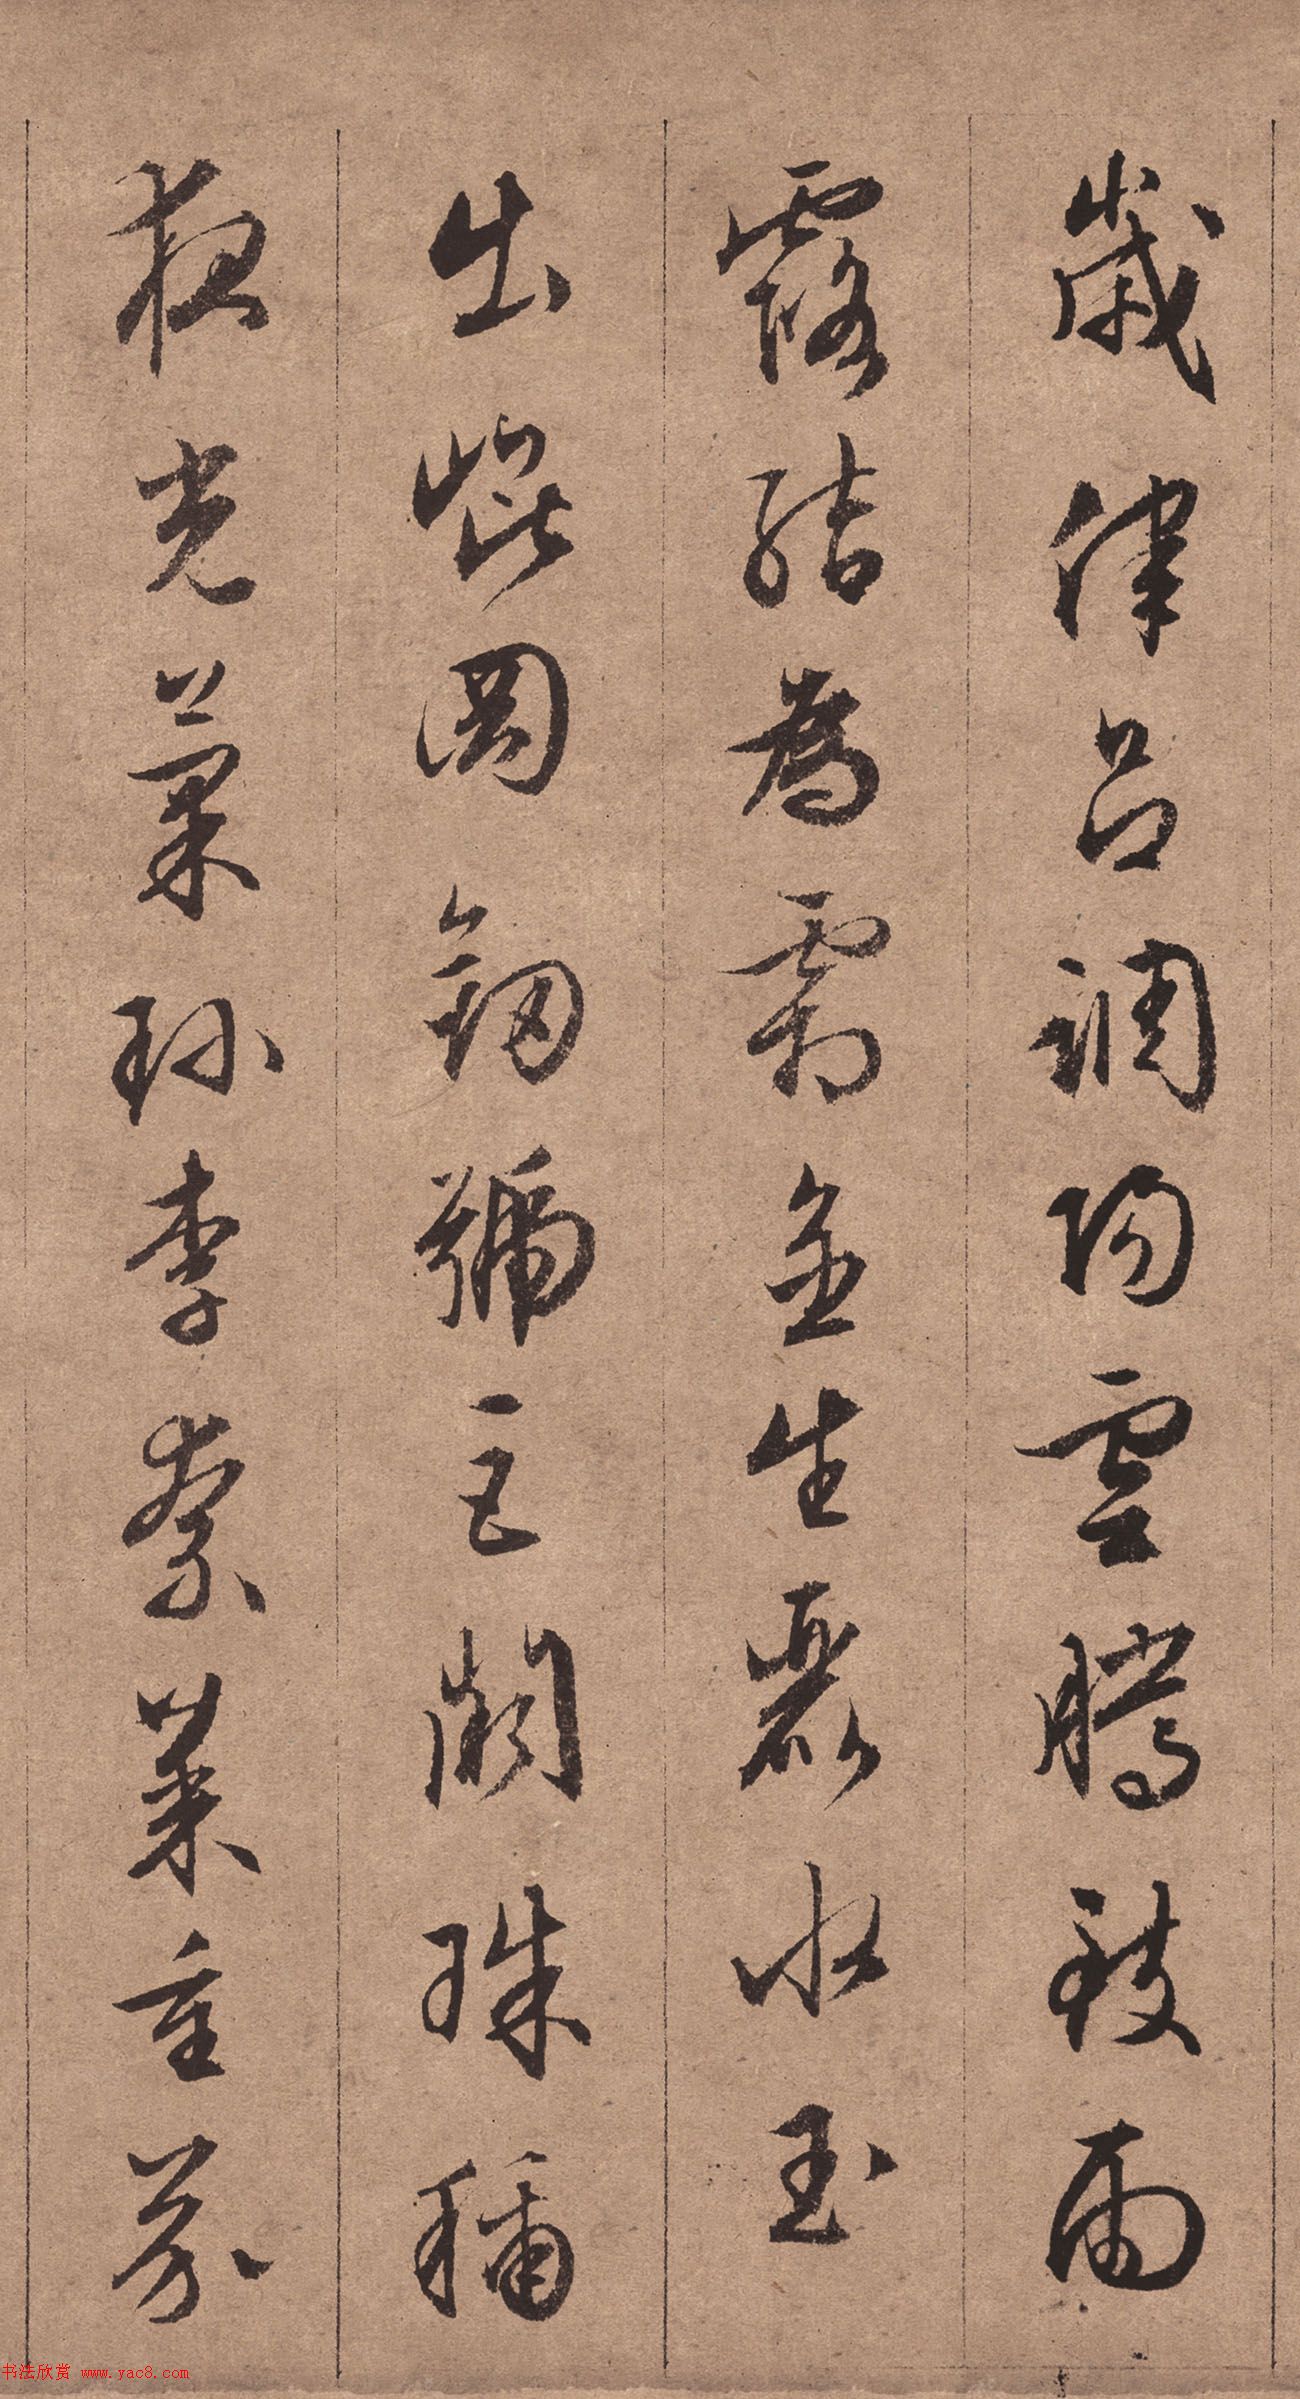 歲律呂調陽雲騰致雨
露結為霜金生麗水玉
出崐岡釰號巨闕珠稱
夜光菓珎李柰菜重芥
书法欣赏 www.yac8.com